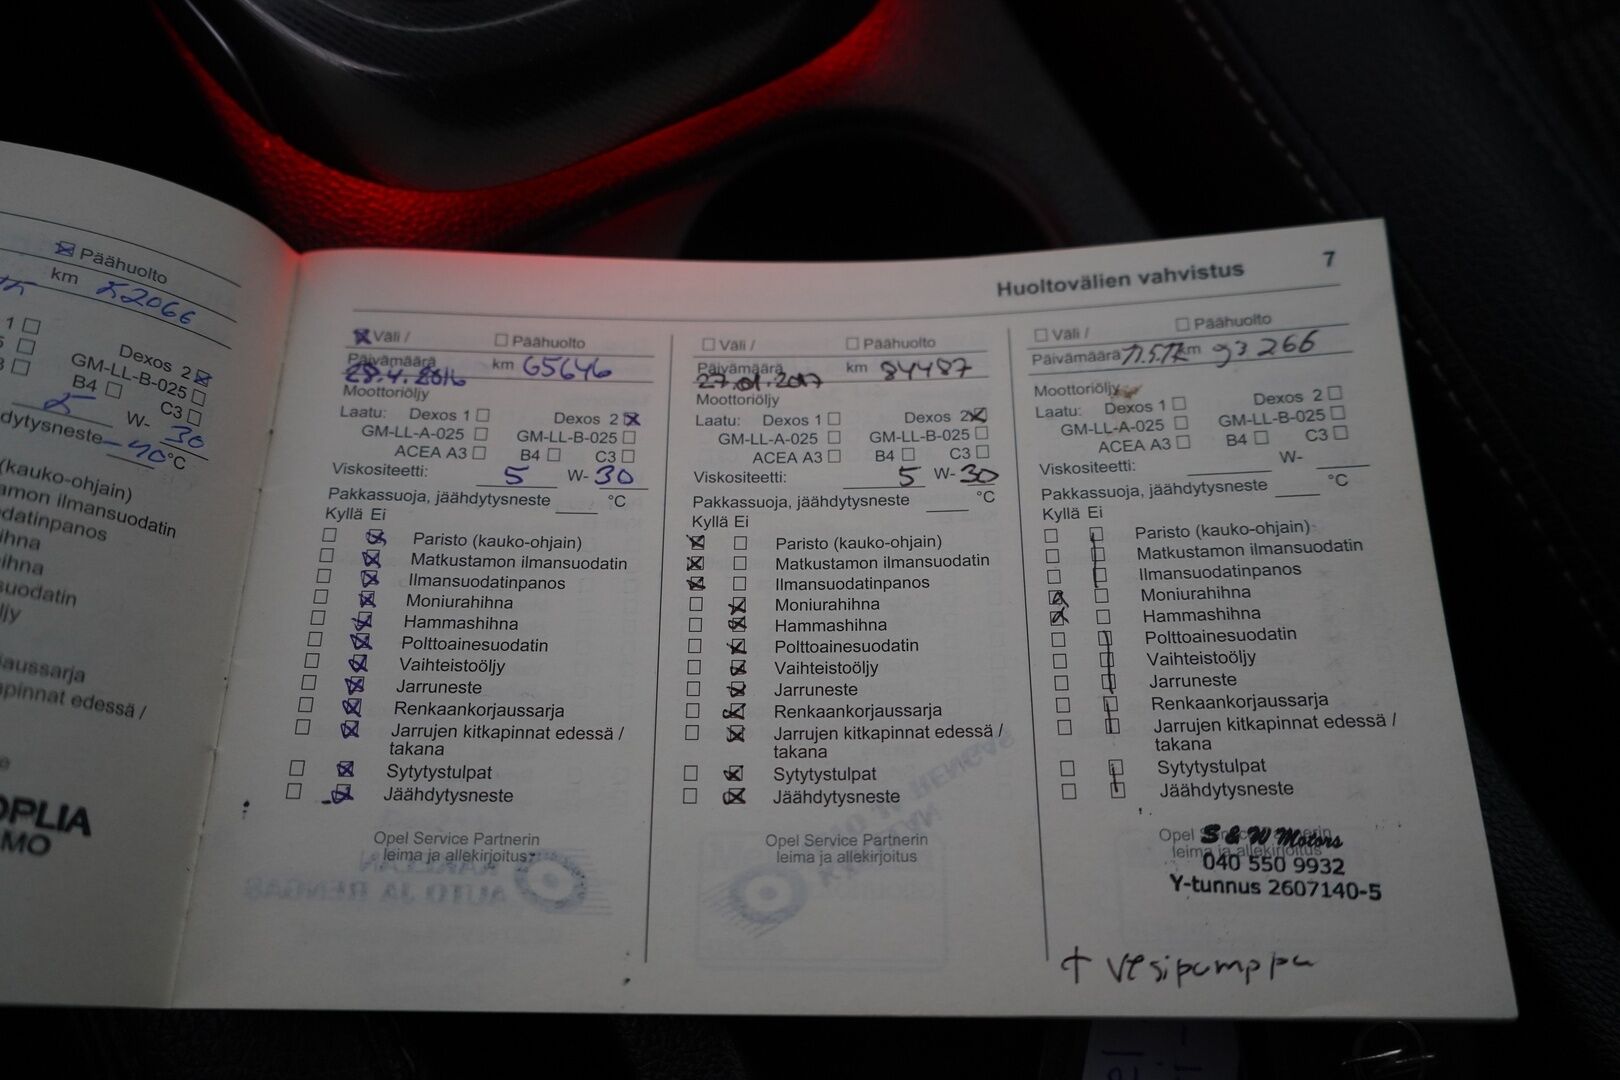 Päähuolto
km 52066
Dexos 2
GM-LL-B-025
B4 C3
5 W- 30
-40 °C
(kauko-ohjain)
ilmansuodatin
OPLIA
MO
Huoltovälien vahvistus 7
Väli / Päähuolto
Päivämäärä km 65646
28.4.2016
Moottoriöljy
Laatu: Dexos 1 Dexos 2
GM-LL-A-025 GM-LL-B-025
ACEA A3 B4 C3
Viskositeetti: 5 W- 30
Pakkassuoja, jäähdytysneste °C
Kyllä Ei
Paristo (kauko-ohjain)
Matkustamon ilmansuodatin
Ilmansuodatinpanos
Moniurahihna
Hammashihna
Polttoainesuodatin
Vaihteistoöljy
Jarruneste
Renkaankorjaussarja
Jarrujen kitkapinnat edessä /
takana
Sytytystulpat
Jäähdytysneste
Opel Service Partnerin
leima ja allekirjoitus
Väli / Päähuolto
Päivämäärä km 84487
27.01.2017
Moottoriöljy
Laatu: Dexos 1 Dexos 2
GM-LL-A-025 GM-LL-B-025
ACEA A3 B4 C3
Viskositeetti: 5 W- 30
Pakkassuoja, jäähdytysneste °C
Kyllä Ei
Paristo (kauko-ohjain)
Matkustamon ilmansuodatin
Ilmansuodatinpanos
Moniurahihna
Hammashihna
Polttoainesuodatin
Vaihteistoöljy
Jarruneste
Renkaankorjaussarja
Jarrujen kitkapinnat edessä /
takana
Sytytystulpat
Jäähdytysneste
Opel Service Partnerin
leima ja allekirjoitus
Väli / Päähuolto
Päivämäärä 11.5.17 km 93 266
Moottoriöljy
Laatu: Dexos 1 Dexos 2
GM-LL-A-025 GM-LL-B-025
ACEA A3 B4 C3
Viskositeetti: W-
Pakkassuoja, jäähdytysneste °C
Kyllä Ei
Paristo (kauko-ohjain)
Matkustamon ilmansuodatin
Ilmansuodatinpanos
Moniurahihna
Hammashihna
Polttoainesuodatin
Vaihteistoöljy
Jarruneste
Renkaankorjaussarja
Jarrujen kitkapinnat edessä /
takana
Sytytystulpat
Jäähdytysneste
Opel Service Partnerin
leima ja allekirjoitus
S & W Motors
040 550 9932
Y-tunnus 2607140-5
+ vesipumppu